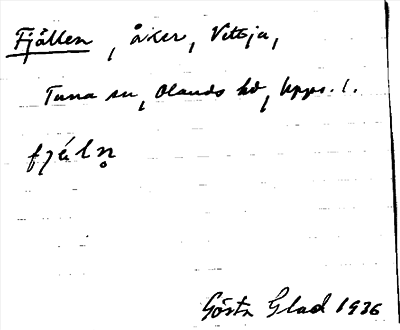 Fjällen, åker, Vettsja,
Tuna sn, Olands hd, Upps. l.
fjälṇ
Gösta Glad 1936